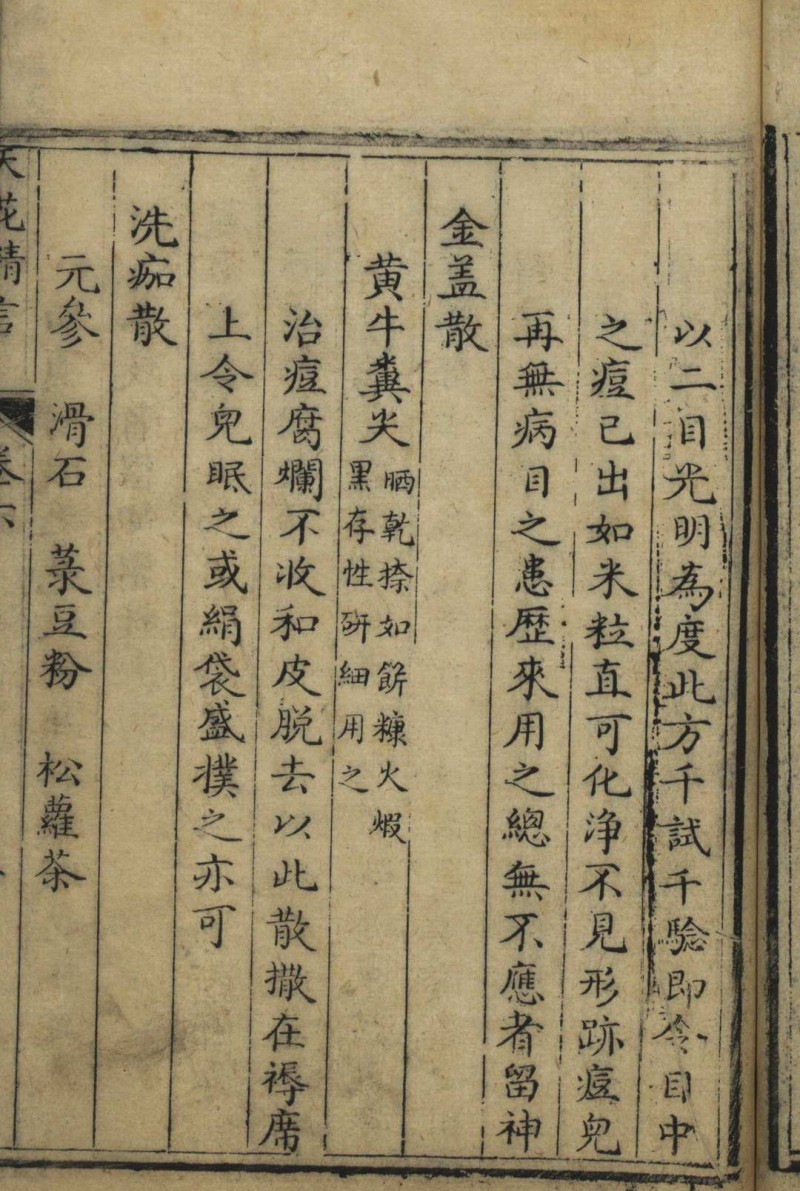 以二目光明為度此方千試千驗即令目中
之痘已出如米粒直可化淨不見形跡痘兒
再無病目之患歷來用之總無不應者留神
金盖散
黄牛糞尖
晒乾捺如餅糠火煆
黑存性研細用之
治痘腐爛不收和皮脫去以此散撒在褥席
上令兒眠之或絹袋盛撲之亦可
洗痂散
元參 滑石 菉豆粉 松蘿茶
天花精言 卷六